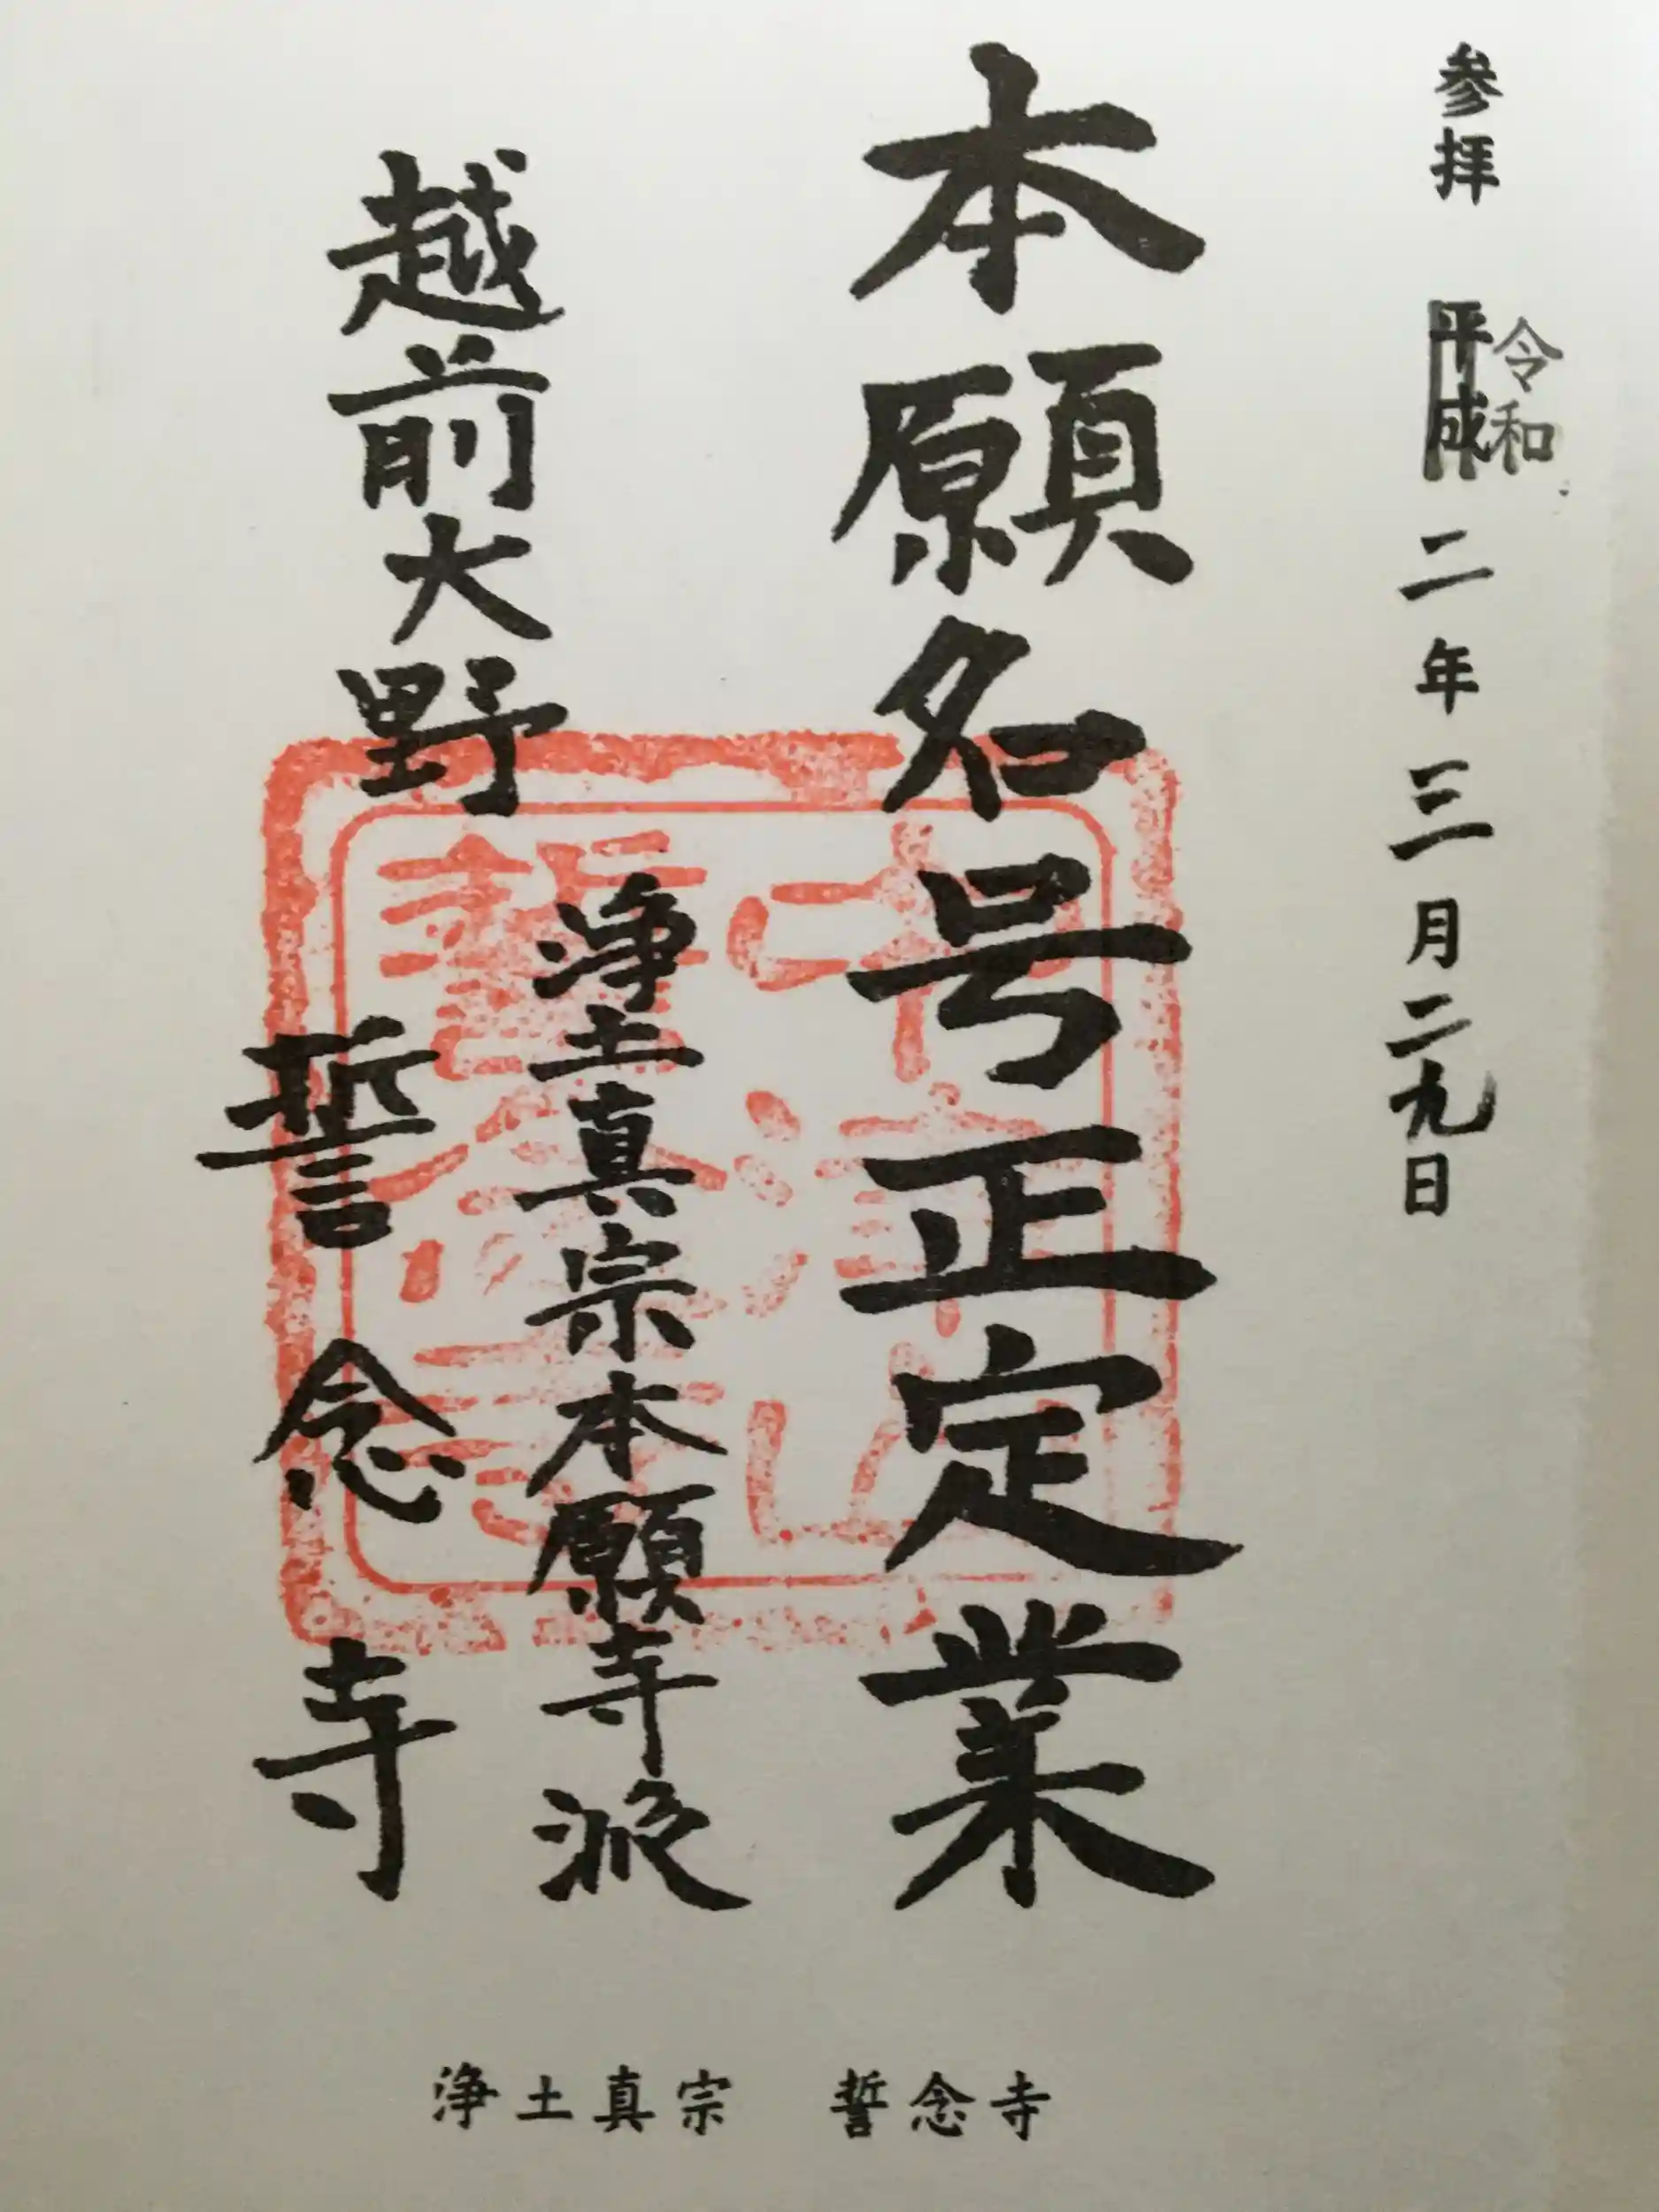 参拝 平成 令和 二年三月二九日
本願名号正定業
浄土真宗本願寺派
越前大野
誓念寺
浄土真宗 誓念寺